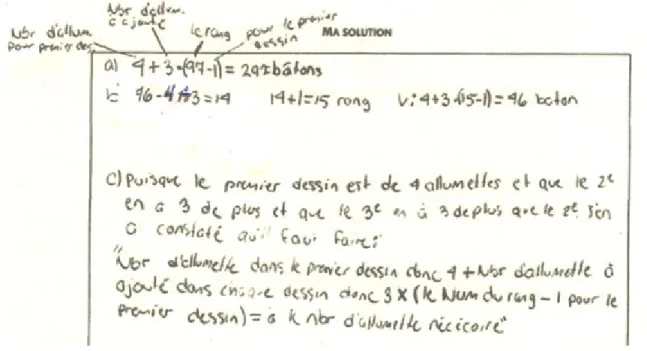 Nbr d'allum.
à ajouté
Nbr d'allum.
pour premier des.
le rang
pour le premier
dessin
MA SOLUTION
a) 4+3·(97-1)= 292 bâtons
b 46-4÷3=14 14+1=15 rang V: 4+3·(15-1)=46 baton
c) Puisque le premier dessin est de 4 allumettes et que le 2e
en a 3 de plus et que le 3e en à 3 deplus que le 2e. J'en
a constaté qu'il faut faire:
"Nbr d'allumette dans le premier dessin donc 4 + Nbr d'allumette à
ajouté dans chaque dessin donc 3 X (le Num du rang - 1 pour le
premier dessin) = à le nbr d'allumette nécicoire"